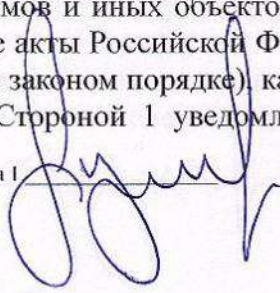 мов и иных объекто
е акты Российской Ф
законом порядке), ка
Стороной 1 уведомл